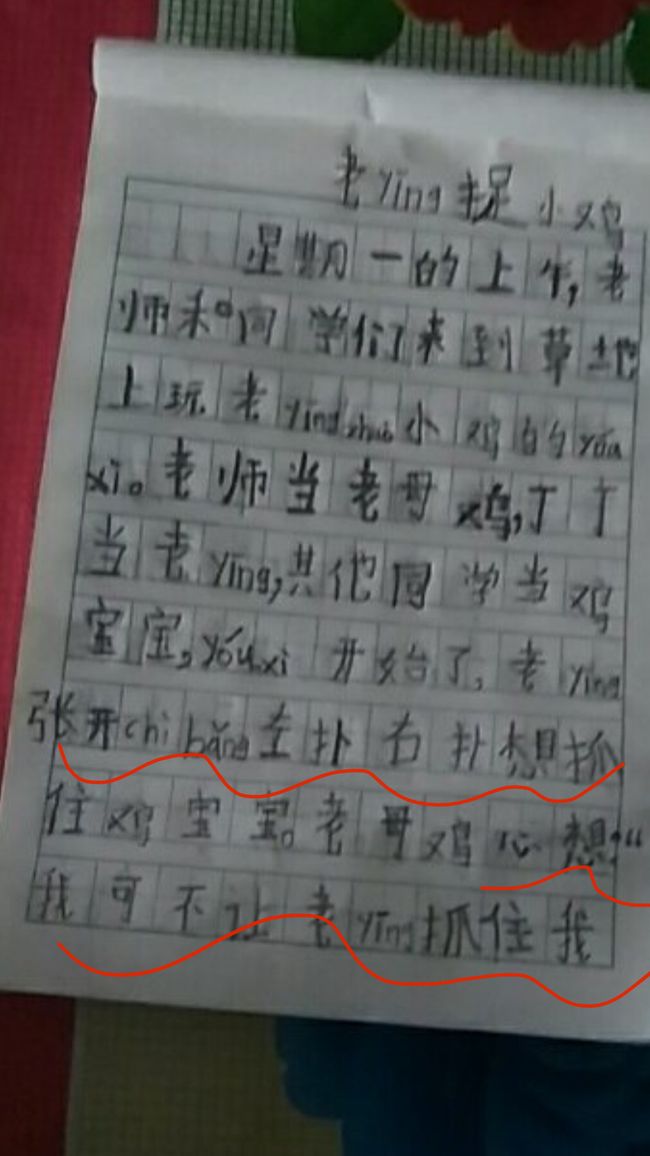 老yīng捉小鸡
星期一的上午,老
师和同学们来到草地
上玩老yīng zhuō小鸡的yóu
xì。老师当老母鸡,丁丁
当老yīng,其他同学当鸡
宝宝,yóu xì开始了,老yīng
张开chì bǎng左扑右扑想抓
住鸡宝宝。老母鸡心想:“
我可不让老yīng抓住我